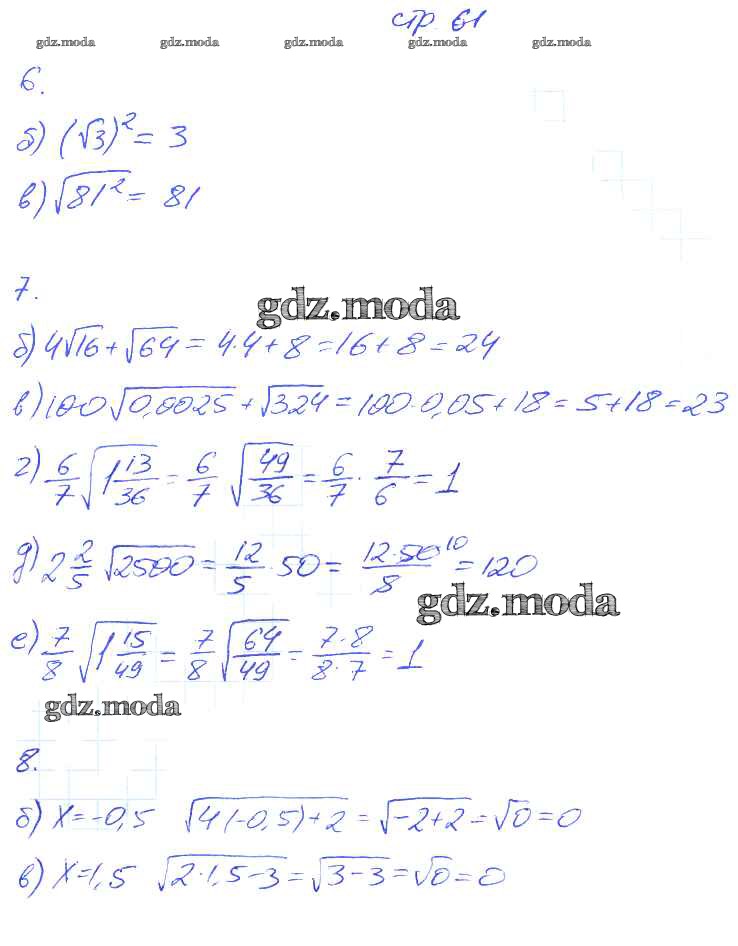 стр 61
gdz.moda gdz.moda gdz.moda gdz.moda gdz.moda
6.
б) (√3)² = 3
в) √81² = 81
7.
gdz.moda
б) 4√16 + √64 = 4·4 + 8 = 16 + 8 = 24
в) 100√0,0025 + √324 = 100·0,05 + 18 = 5 + 18 = 23
г) 6/7 √1 13/36 = 6/7 √49/36 = 6/7 · 7/6 = 1
д) 2 2/5 √2500 = 12/5 · 50 = 12·50 10/5 = 120
gdz.moda
е) 7/8 √1 15/49 = 7/8 √64/49 = 7·8/8·7 = 1
gdz.moda
8.
б) x = -0,5 √4(-0,5)+2 = √-2+2 = √0 = 0
в) x = 1,5 √2·1,5-3 = √3-3 = √0 = 0